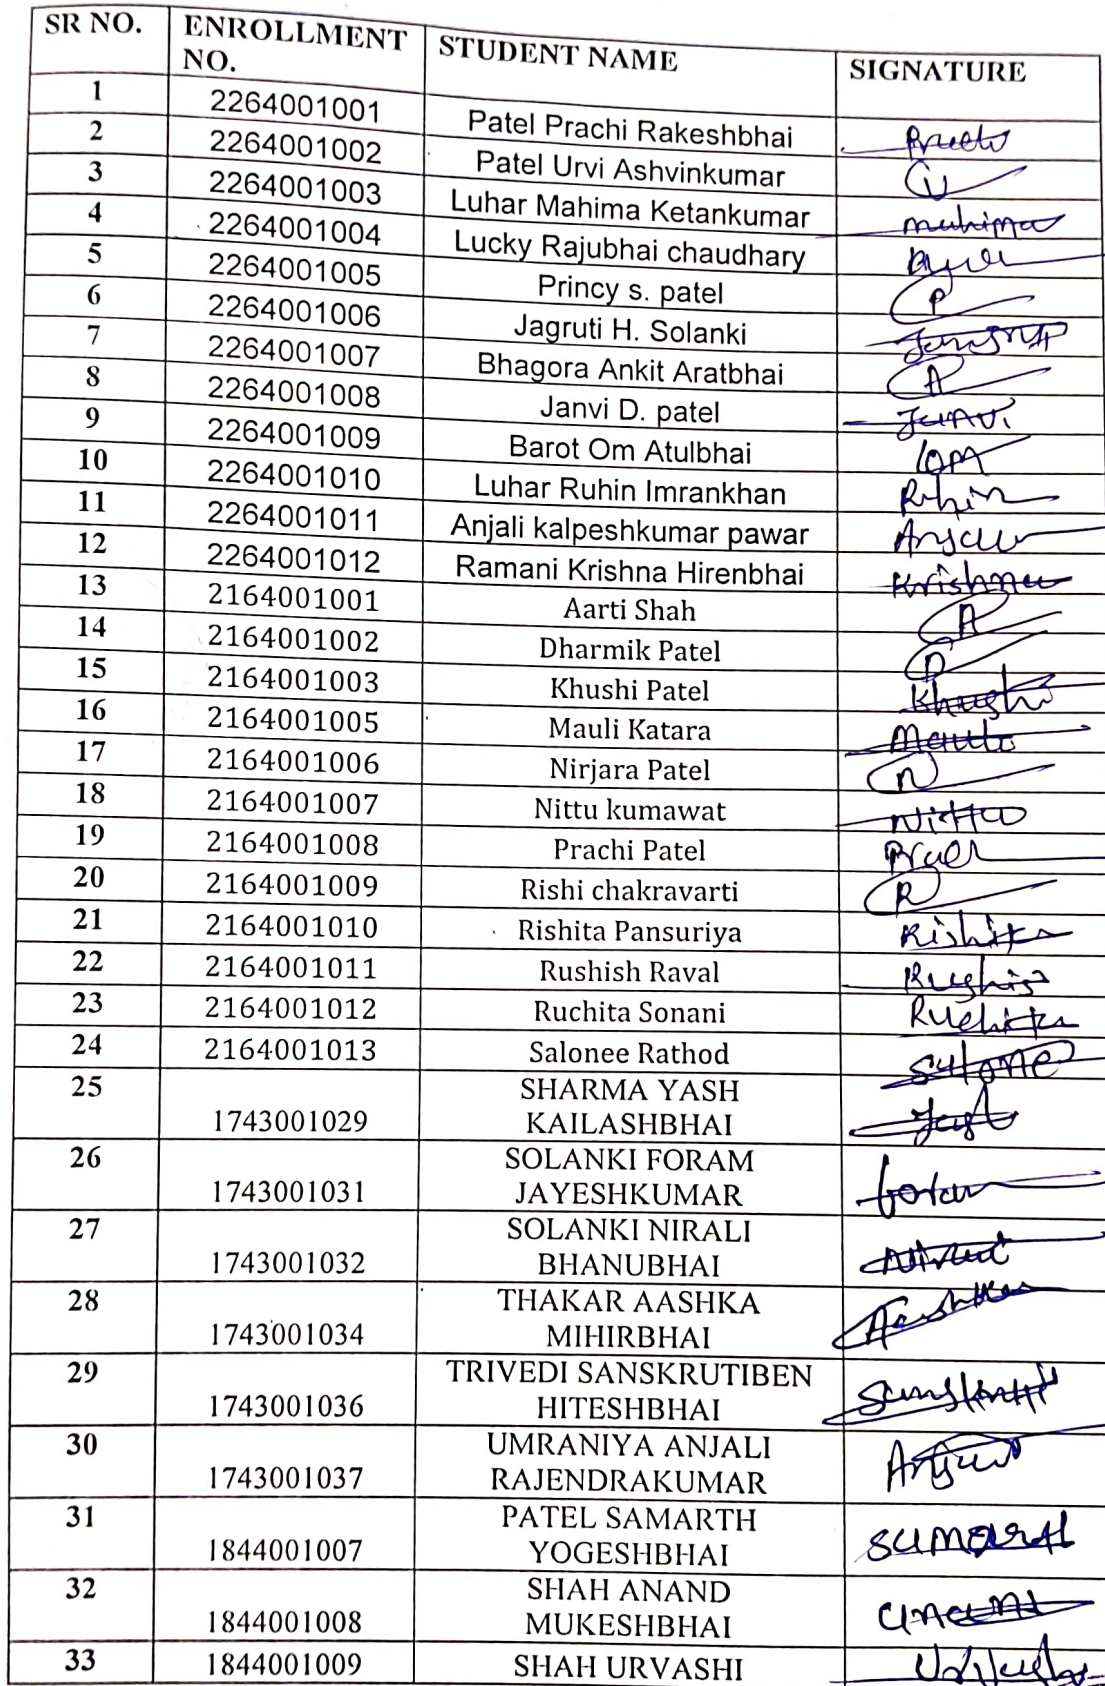 SR NO. ENROLLMENT NO. STUDENT NAME SIGNATURE
1 2264001001 Patel Prachi Rakeshbhai
2 2264001002 Patel Urvi Ashvinkumar U
3 2264001003 Luhar Mahima Ketankumar mahima
4 2264001004 Lucky Rajubhai chaudhary
5 2264001005 Princy s. patel P
6 2264001006 Jagruti H. Solanki
7 2264001007 Bhagora Ankit Aratbhai A
8 2264001008 Janvi D. patel Janvi
9 2264001009 Barot Om Atulbhai om
10 2264001010 Luhar Ruhin Imrankhan Ruhin
11 2264001011 Anjali kalpeshkumar pawar
12 2264001012 Ramani Krishna Hirenbhai Krishna
13 2164001001 Aarti Shah A
14 2164001002 Dharmik Patel D
15 2164001003 Khushi Patel Khushi
16 2164001005 Mauli Katara Mauli
17 2164001006 Nirjara Patel n
18 2164001007 Nittu kumawat
19 2164001008 Prachi Patel
20 2164001009 Rishi chakravarti R
21 2164001010 Rishita Pansuriya Rishita
22 2164001011 Rushish Raval
23 2164001012 Ruchita Sonani Ruchita
24 2164001013 Salonee Rathod
25 1743001029 SHARMA YASH
KAILASHBHAI
26 1743001031 SOLANKI FORAM
JAYESHKUMAR
27 1743001032 SOLANKI NIRALI
BHANUBHAI
28 1743001034 THAKAR AASHKA
MIHIRBHAI Aashka
29 1743001036 TRIVEDI SANSKRUTIBEN
HITESHBHAI
30 1743001037 UMRANIYA ANJALI
RAJENDRAKUMAR
31 1844001007 PATEL SAMARTH
YOGESHBHAI
32 1844001008 SHAH ANAND
MUKESHBHAI
33 1844001009 SHAH URVASHI